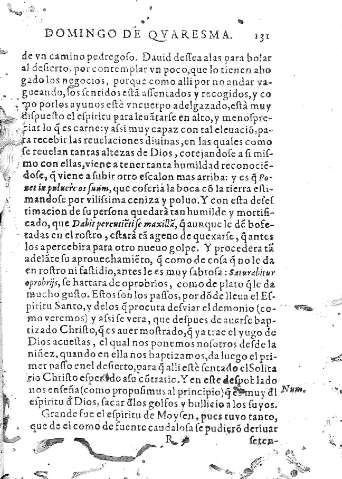 DOMINGO DE QVARESMA. 131
de vn camino pedregoso. Dauid dessea alas para bolar
al desierto. por contemplar vn poco, que lo tienen aho
gado los negocios, porque como alli por no andar va-
gueando, los sentidos està assentados y recogidos, y co
mo por los ayunos estè vn cuerpo adelgazado, està muy
dispuesto el espiritu para leuãtarse en alto, y menospre-
ciar lo q̃ es carne: y assi muy capaz con tal eleuaciõ, pa-
ra recebir las reuelaciones diuinas, en las quales como
se reuelan tantas altezas de Dios, cotejandose a si mis-
mo con ellas, viene a tener tanta humildad reconociẽ
dose, q̃ viene a subir otro escalon mas arriba: y es q̃ Po-
net in puluere os suum, que coseria la boca cõ la tierra esti-
mandose por vilissima ceniza y poluo. Y con esta deses
timacion de su persona quedarà tan humilde y mortifi-
cado, que Dabit percutiẽti se maxillã, q̃ aunque le dẽ bofe-
tadas en el rostro, estarà tã ageno de quexarse, q̃ antes
los apercebira para otro nueuo golpe. Y procederà tã
adelãte su aprouechamiẽto, q̃ como de cosa q̃ no le da
en rostro ni fastidio, antes le es muy sabrosa: Saturabitur
oprobrijs, se hartara de oprobrios, como de plato q̃ le da
mucho gusto. Estos son los passos, por dõde lleua el Es-
piritu Santo, y delos q̃ procura desuiar el demonio (co-
mo veremos) y assi se vera, que despues de auerse bap-
tizado Christo, q̃ es auer mostrado, q̃ ya trae el yugo de
Dios acuestas, el qual nos ponemos nosotros desde la
niñez, quando en ella nos baptizamos, da luego el pri-
mer passo en el desierto, para q̃ alli estè sentado el Solita
rio Christo esperãdo a su cõtrario. Y en este despoblado
nos enseña (como propusimus al principio) q̃ es muy ðl
espiritu ð Dios, sacar ðlos golfos y bullicio a los suyos.
Num.
Grande fue el espiritu de Moysen, pues tuuo tanto,
que de el como de fuente caudalosa se pudierõ deriuar
R seten-